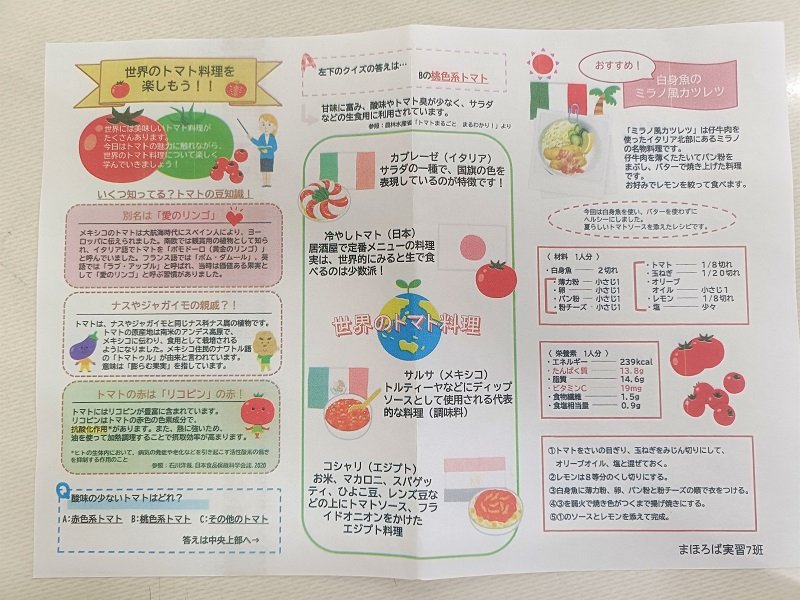 世界のトマト料理を
楽しもう！！
世界には美味しいトマト料理が
たくさんあります。
今日はトマトの魅力に触れながら、
世界のトマト料理について楽しく
学んでいきましょう！
いくつ知ってる？トマトの豆知識！
別名は「愛のリンゴ」
メキシコのトマトは大航海時代にスペイン人により、ヨー
ロッパに伝えられました。南欧では観賞用の植物として知ら
れ、イタリア語でトマトを「ポモドーロ（黄金のリンゴ）」
と呼んでいました。フランス語では「ポム・ダムール」、英
語では「ラブ・アップル」と呼ばれ、当時は価値ある果実と
して「愛のリンゴ」と呼ぶ習慣がありました。
ナスやジャガイモの親戚？！
トマトは、ナスやジャガイモと同じナス科ナス属の植物です。
トマトの原産地は南米のアンデス高原で、
メキシコに伝わり、食用として栽培される
ようになりました。メキシコ住民のナワトル語
の「トマトゥル」が由来と言われています。
意味は「膨らむ果実」を指しています。
トマトの赤は「リコピン」の赤！
トマトにはリコピンが豊富に含まれています。
リコピンはトマトの赤色の色素成分で、
抗酸化作用*があります。また、熱に強いため、
油を使って加熱調理することで摂取効率が高まります。
*ヒトの生体内において、病気の発症や老化などを引き起こす活性酸素の働き
を抑制する作用のこと
Q
酸味の少ないトマトはどれ？
A:赤色系トマト B:桃色系トマト C:その他のトマト
答えは中央上部へ→
A
左下のクイズの答えは…
Bの桃色系トマト
甘味に富み、酸味やトマト臭が少なく、サラダ
などの生食用に利用されています。
参照：農林水産省「トマトまるごと まるわかり！」より
カプレーゼ（イタリア）
サラダの一種で、国旗の色を
表現しているのが特徴です！
冷やしトマト（日本）
居酒屋で定番メニューの料理
実は、世界的にみると生で食
べるのは少数派！
世界のトマト料理
サルサ（メキシコ）
トルティーヤなどにディップ
ソースとして使用される代表
的な料理（調味料）
コシャリ（エジプト）
お米、マカロニ、スパゲッ
ティ、ひよこ豆、レンズ豆など
の上にトマトソース、フライ
ドオニオンをかけた
エジプト料理
おすすめ！
白身魚の
ミラノ風カツレツ
「ミラノ風カツレツ」は仔牛肉を
使ったイタリア北部にあるミラノ
の名物料理です。
仔牛肉を薄くたたいてパン粉を
まぶし、バターで焼き上げた料理
です。
お好みでレモンを絞って食べます。
今回は白身魚を使い、バターを使わずに
ヘルシーにしました。
夏らしいトマトソースを添えたレシピです。
（ 材料 1人分 ）
・白身魚 ―― 2切れ
・薄力粉 ―― 小さじ1
・卵 ―― 小さじ1
・パン粉 ―― 小さじ1
・粉チーズ ―― 小さじ1
・トマト ―― 1／8切れ
・玉ねぎ ―― 1／20切れ
・オリーブ
オイル ―― 小さじ1
・レモン ―― 1／8切れ
・塩 ―― 少々
（ 栄養素 1人分 ）
・エネルギー ―― 239kcal
・たんぱく質 ―― 13.8g
・脂質 ―― 14.6g
・ビタミンC ―― 19mg
・食物繊維 ―― 1.5g
・食塩相当量 ―― 0.9g
①トマトをさいの目ぎり、玉ねぎをみじん切りにして、
オリーブオイル、塩と混ぜておく。
②レモンは8等分のくし切りにする。
③白身魚に薄力粉、卵、パン粉と粉チーズの順で衣をつける。
④③を弱火で焼き色がつくまで揚げ焼きにする。
⑤①のソースとレモンを添えて完成。
まほろば実習7班